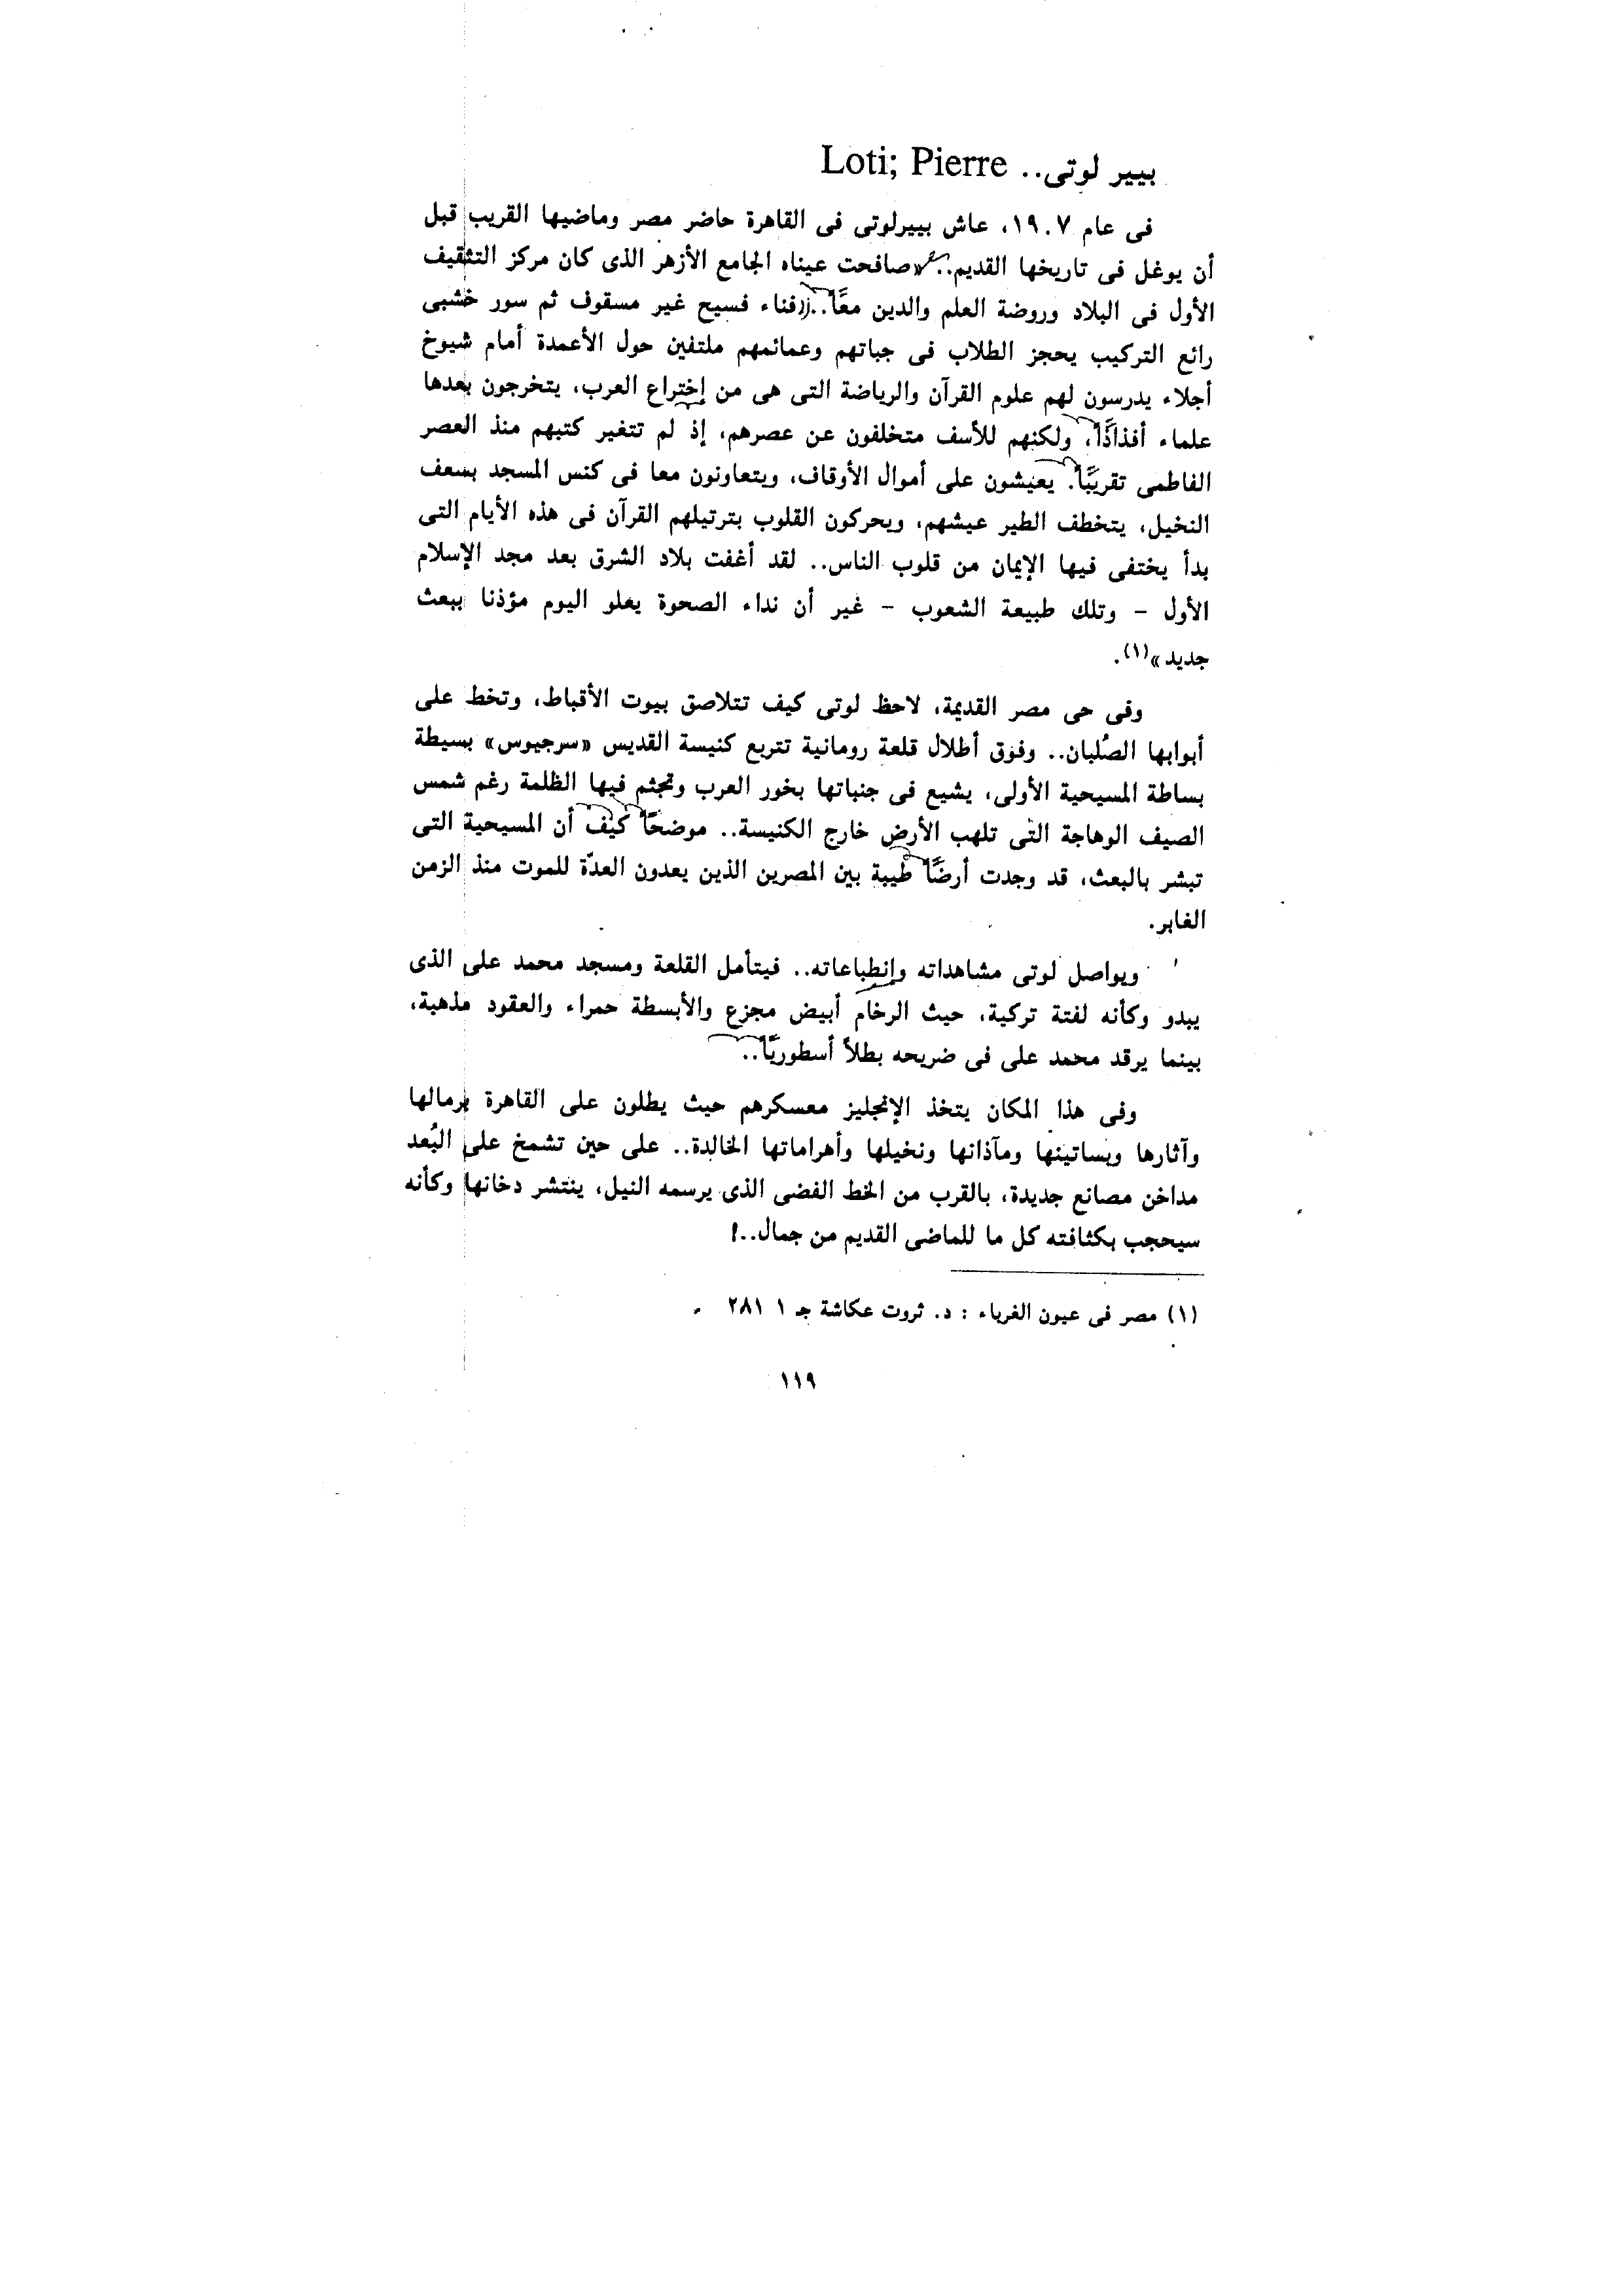 بيير لوتى.. Loti; Pierre
فى عام ١٩٠٧، عاش بييرلوتى فى القاهرة حاضر مصر وماضيها القريب قبل
أن يوغل فى تاريخها القديم.. «صافحت عيناه الجامع الأزهر الذى كان مركز التثقيف
الأول فى البلاد وروضة العلم والدين معًا.. فناء فسيح غير مسقوف ثم سور خشبى
رائع التركيب يحجز الطلاب فى جباتهم وعمائمهم ملتفين حول الأعمدة أمام شيوخ
أجلاء يدرسون لهم علوم القرآن والرياضة التى هى من إختراع العرب، يتخرجون بعدها
علماء أفذاذًا، ولكنهم للأسف متخلفون عن عصرهم، إذ لم تتغير كتبهم منذ العصر
الفاطمى تقريبًا. يعيشون على أموال الأوقاف، ويتعاونون معا فى كنس المسجد بسعف
النخيل، يتخطف الطير عيشهم، ويحركون القلوب بترتيلهم القرآن فى هذه الأيام التى
بدأ يختفى فيها الإيمان من قلوب الناس.. لقد أغفت بلاد الشرق بعد مجد الإسلام
الأول - وتلك طبيعة الشعوب - غير أن نداء الصحوة يعلو اليوم مؤذنا ببعث
جديد»(١).
وفى حى مصر القديمة، لاحظ لوتى كيف تتلاصق بيوت الأقباط، وتخط على
أبوابها الصُلبان.. وفوق أطلال قلعة رومانية تتربع كنيسة القديس «سرجيوس» بسيطة
بساطة المسيحية الأولى، يشيع فى جنباتها بخور العرب وتجثم فيها الظلمة رغم شمس
الصيف الوهاجة التى تلهب الأرض خارج الكنيسة.. موضحًا كيف أن المسيحية التى
تبشر بالبعث، قد وجدت أرضًا طيبة بين المصرين الذين يعدون العدّة للموت منذ الزمن
الغابر.
ويواصل لوتى مشاهداته وإنطباعاته.. فيتأمل القلعة ومسجد محمد على الذى
يبدو وكأنه لفتة تركية، حيث الرخام أبيض مجزع والأبسطة حمراء والعقود مذهبة،
بينما يرقد محمد على فى ضريحه بطلاً أسطوريًا..
وفى هذا المكان يتخذ الإنجليز معسكرهم حيث يطلون على القاهرة برمالها
وآثارها وبساتينها ومآذانها ونخيلها وأهراماتها الخالدة.. على حين تشمخ على البُعد
مداخن مصانع جديدة، بالقرب من الخط الفضى الذى يرسمه النيل، ينتشر دخانها وكأنه
سيحجب بكثافته كل ما للماضى القديم من جمال..!
(١) مصر فى عيون الغرباء : د. ثروت عكاشة جـ ١ ٢٨١
١١٩